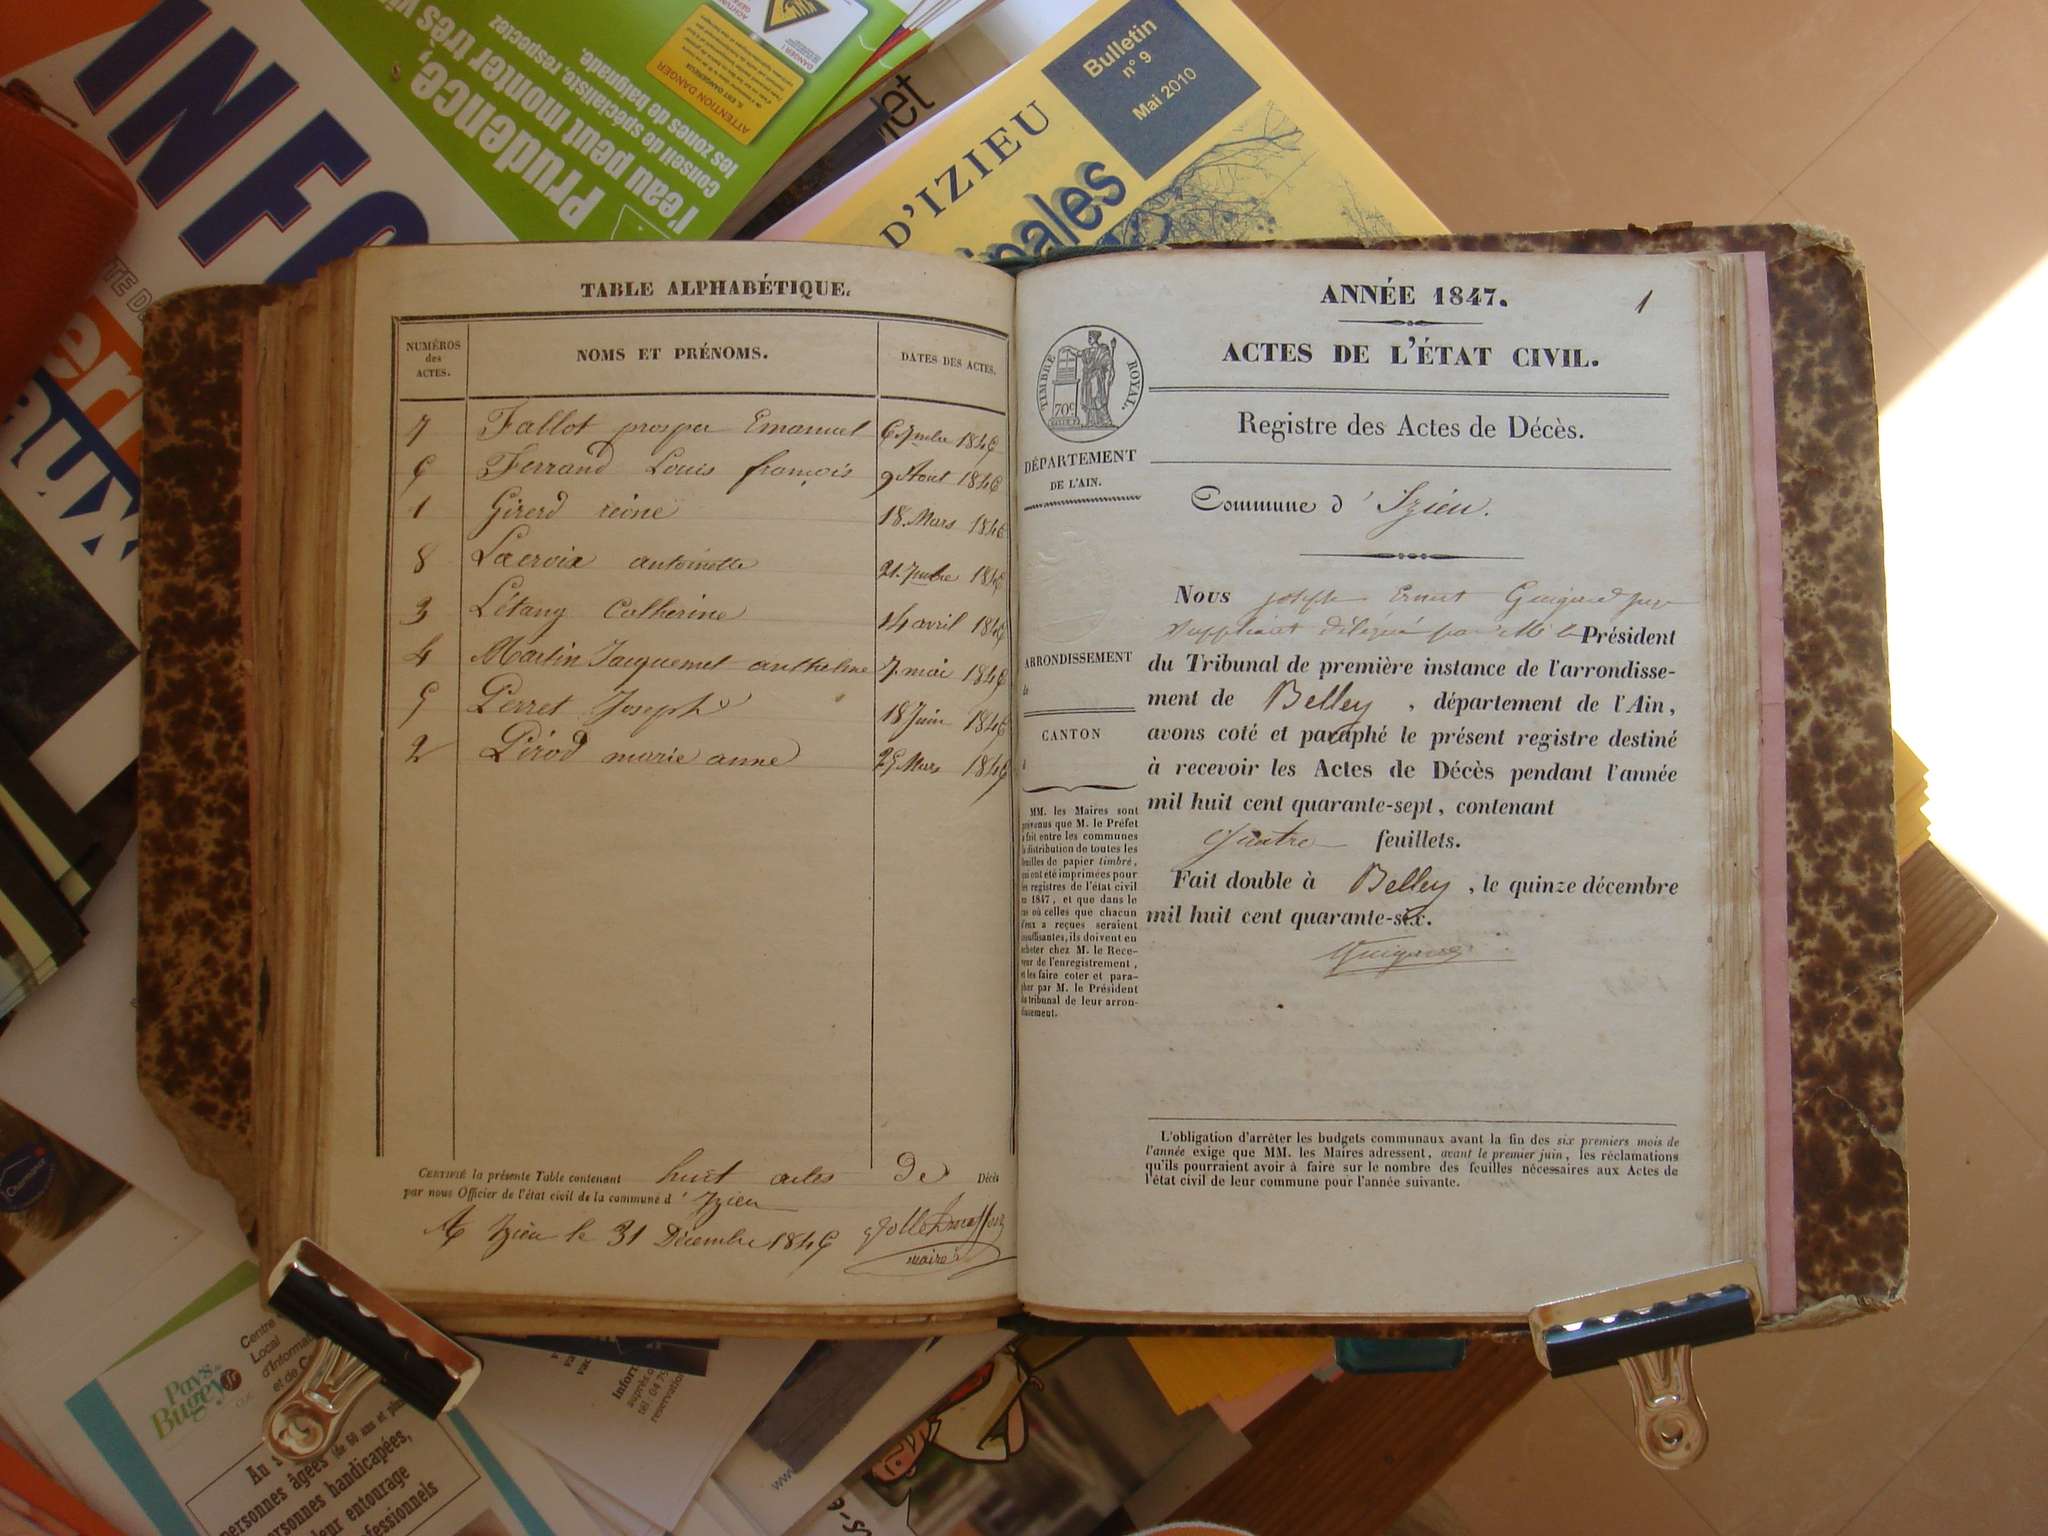 INFO
Prudence,
l'eau peut monter très vi
conseil de spécialiste, respectez
les zones de baignade.
ATTENTION DANGER
D'IZIEU
Bulletin
n° 9
Mai 2010
TABLE ALPHABÉTIQUE.
NUMÉROS
des
ACTES.
NOMS ET PRÉNOMS.
DATES DES ACTES.
7 Fallot prosper Emanuel 6 7mbre 1846
6 Ferrand Louis françois 9 Aout 1846
1 Girerd reine 18 Mars 1846
8 Lacroix antoinette 21 7mbre 1846
3 Létang Catherine 14 avril 1846
4 Martin Jacquemet anthelme 7 mai 1846
5 Perret Joseph 18 Juin 1846
2 Pirod marie anne 25 Mars 1846
CERTIFIÉ la présente Table contenant huit actes de Décès
par nous Officier de l'état civil de la commune d'Izieu
A Izieu le 31 Décembre 1846
maire
ANNÉE 1847. 1
ACTES DE L'ÉTAT CIVIL.
TIMBRE ROYAL.
70c
Registre des Actes de Décès.
DÉPARTEMENT
DE L'AIN.
Commune d'Izieu.
ARRONDISSEMENT
de
CANTON
à
MM. les Maires sont
prévenus que M. le Préfet
a fait entre les communes
la distribution de toutes les
feuilles de papier timbré,
qui ont été imprimées pour
les registres de l'état civil
en 1847, et que dans le
cas où celles que chacun
d'eux a reçues seraient
insuffisantes, ils doivent en
acheter chez M. le Rece-
veur de l'enregistrement,
et les faire coter et para-
pher par M. le Président
du tribunal de leur arron-
dissement.
Nous Joseph Ernest Guigard juge
suppléant délégué par Mr le Président
du Tribunal de première instance de l'arrondisse-
ment de Belley, département de l'Ain,
avons coté et paraphé le présent registre destiné
à recevoir les Actes de Décès pendant l'année
mil huit cent quarante-sept, contenant
quatre feuillets.
Fait double à Belley, le quinze décembre
mil huit cent quarante-six.
Guigard
L'obligation d'arrêter les budgets communaux avant la fin des six premiers mois de
l'année exige que MM. les Maires adressent, avant le premier juin, les réclamations
qu'ils pourraient avoir à faire sur le nombre des feuilles nécessaires aux Actes de
l'état civil de leur commune pour l'année suivante.
Pays de
Bugey
Centre
Local
d'Informa
et de Co
personnes âgées (de 60 ans et plus
personnes handicapées,
leur entourage
fessionnels